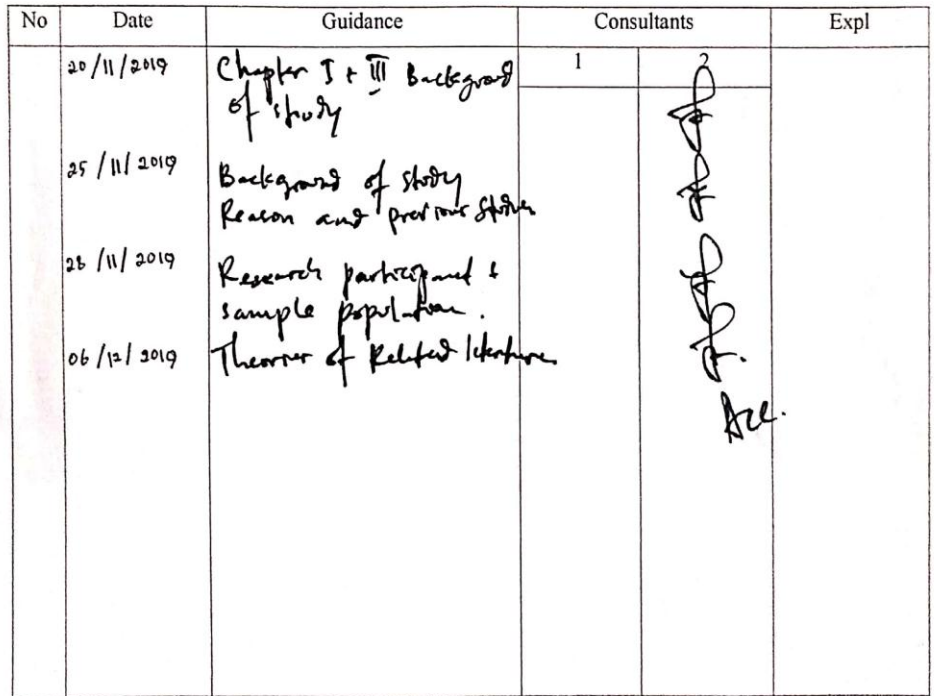 No Date Guidance Consultants Expl
1 2
20/11/2019 Chapter I + III Background
of study
25/11/2019 Background of study
Reason and previous studies
28/11/2019 Research participant &
sample population.
06/12/2019 Theories of Related literature
Acc.